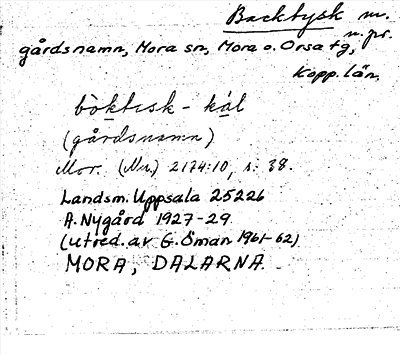 Backtysk m.
n. pr.
gårdsnamn, Mora sn, Mora o. Orsa tg,
Kopp. län.
bòktısk - kál
(gårdsnamn)
Mor. (Nu.) 2174:10, s. 38.
Landsm. Uppsala 25226
A. Nygård 1927-29.
(utred. av G. Öman 1961-62)
MORA, DALARNA.